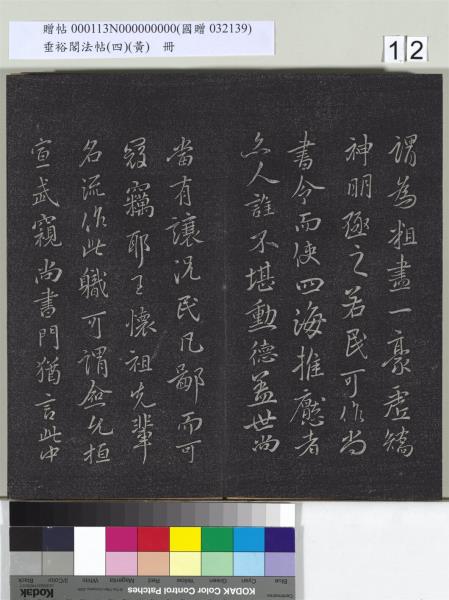 贈帖 000113N000000000(國贈 032139)
垂裕閣法帖(四)(黃) 冊
12
謂為粗盡一豪虛矯
神明殛之若民可作尚
書令而使四海推懕者
亦人誰不堪勳德蓋世尚
當有讓況民凡鄙而可
叨竊耶王懷祖先輩
名流作此職可謂僉允桓
宣武窺尚書門猶言此中
Blue
Cyan
Green
Yellow
Red
Magenta
White
3/Color
Black
Kodak
KODAK Color Control Patches